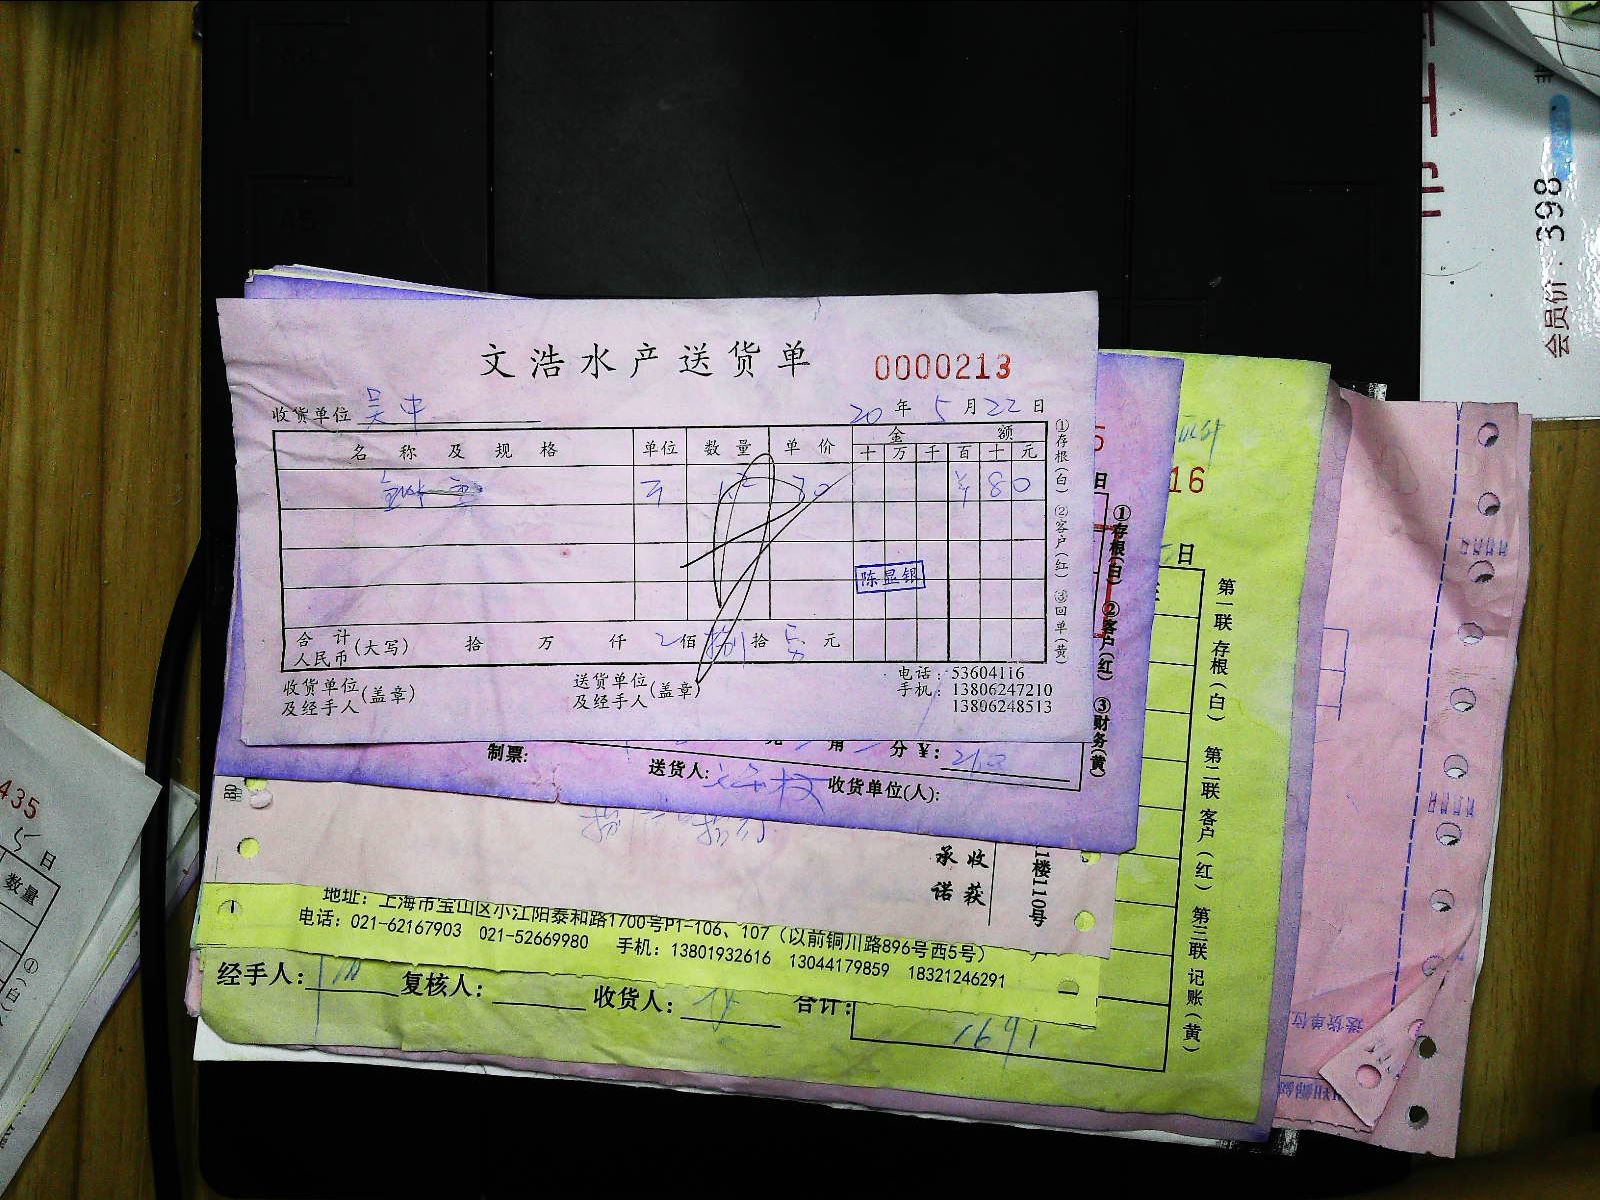 文浩水产送货单 0000213
收货单位 吴中 20年5月22日
名称及规格 单位 数量 单价 金额
十万千百十元
30 ¥80
陈显银
合计人民币(大写) 拾 万 仟 佰 捌拾 元
收货单位及经手人(盖章) 送货单位及经手人(盖章)
电话:53604116
手机:13806247210
13806248513
①存根(白) ②客户(红) ③回单(黄)
制票: 送货人: 收货单位(人):
元 角 分 ¥:
①存根(白) ②客户(红) ③财务(黄)
承诺 收获
1楼110号
地址:上海市宝山区小江阳泰和路1700号P1-106、107(以前铜川路896号西5号)
电话:021-62167903 021-52669980 手机:13801932616 13044179859 18321246291
经手人: 复核人: 收货人: 合计: 1691
16
日
日
第一联 存根(白) 第二联 客户(红) 第三联 记账(黄)
送货单位
会员价:398
435
5日
数量